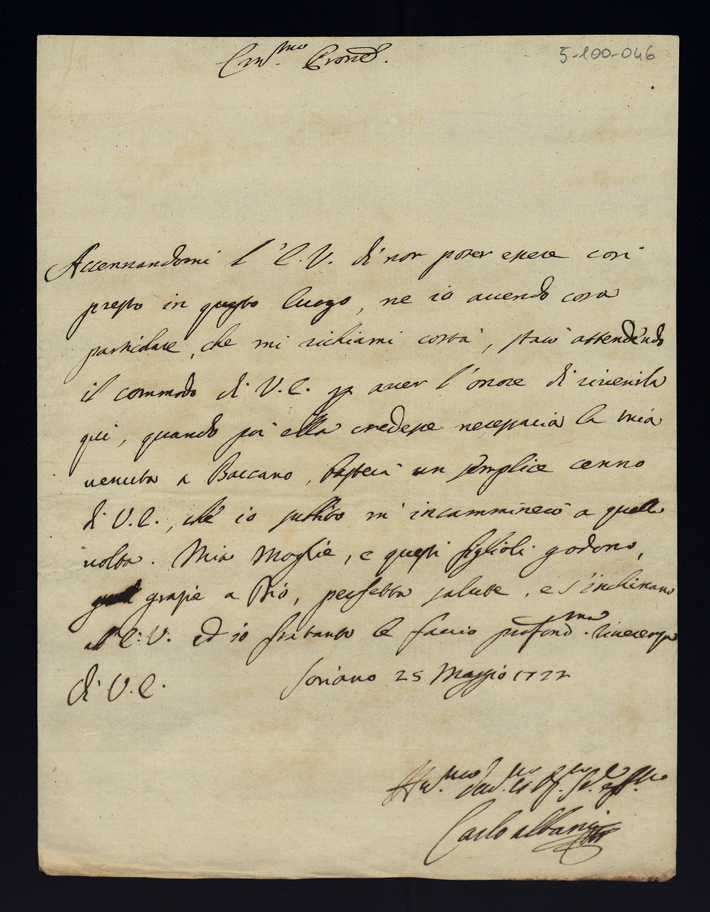 Em.mo Prone
5-100-046
Accennandomi l'E.V. di non poter essere così
presto in questo luogo, ne io avendo cosa
particolare, che mi richiami costà, starò attendendo
il commodo di V.E. p aver l'onore di riverirla
qui, quando poi ella credesse necessaria la mia
venuta a Baccano, basterà un semplice cenno
di V.E., che io subbito m'incamminerò a quella
volta. Mia Moglie, e questi figlioli godono,
grazie a Dio, perfetta salute, e s'inchinano
all'E.V. ed io frattanto le faccio profond.ma riverenza
di V.E. Soriano 25 Maggio 1722
Carlo Albani